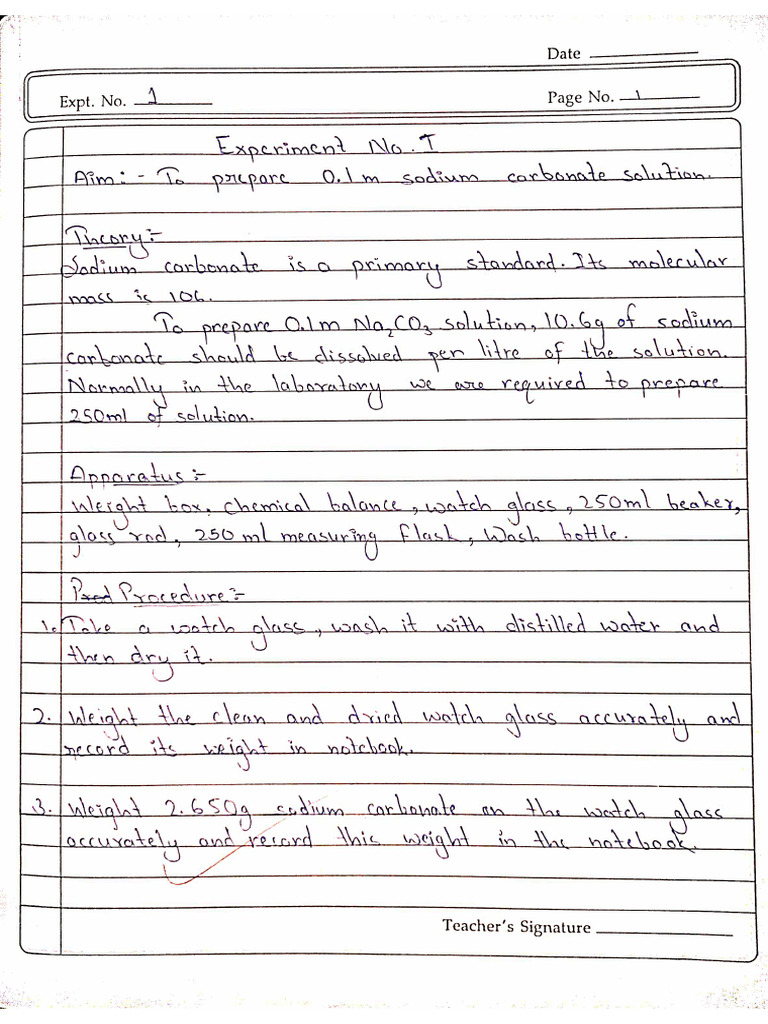 Date
Expt. No. 1
Page No. 1
Experiment No. I
Aim:- To prepare 0.1m sodium carbonate solution.
Theory:-
Sodium carbonate is a primary standard. Its molecular
mass is 106.
To prepare 0.1m Na₂CO₃ solution, 10.6g of sodium
carbonate should be dissolved per litre of the solution.
Normally in the laboratory we are required to prepare
250ml of solution.
Apparatus:-
Weight box, chemical balance, watch glass, 250ml beaker,
glass rod, 250 ml measuring flask, Wash bottle.
Procedure:-
1. Take a watch glass, wash it with distilled water and
then dry it.
2. Weight the clean and dried watch glass accurately and
record its weight in notebook.
3. Weight 2.650g sodium carbonate on the watch glass
accurately and record this weight in the notebook.
Teacher's Signature